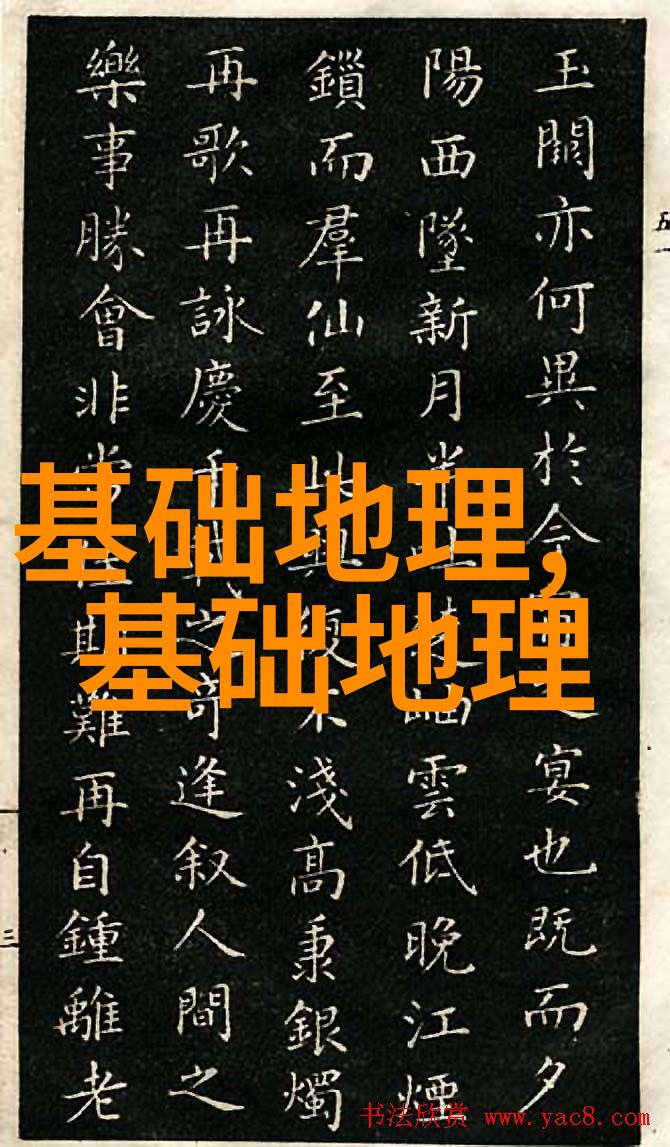 玉闕亦何異於今之宴也既而夕
陽西墜新月半吐楚岫雲低晚江煙
鎖而羣仙至此興復不淺高秉銀燭
再歌再詠慶千載之奇逢叙人間之
樂事勝會非常佳期難再自鍾離老
基础地理,
基础地理
五
三
书法欣赏 www.yac8.com